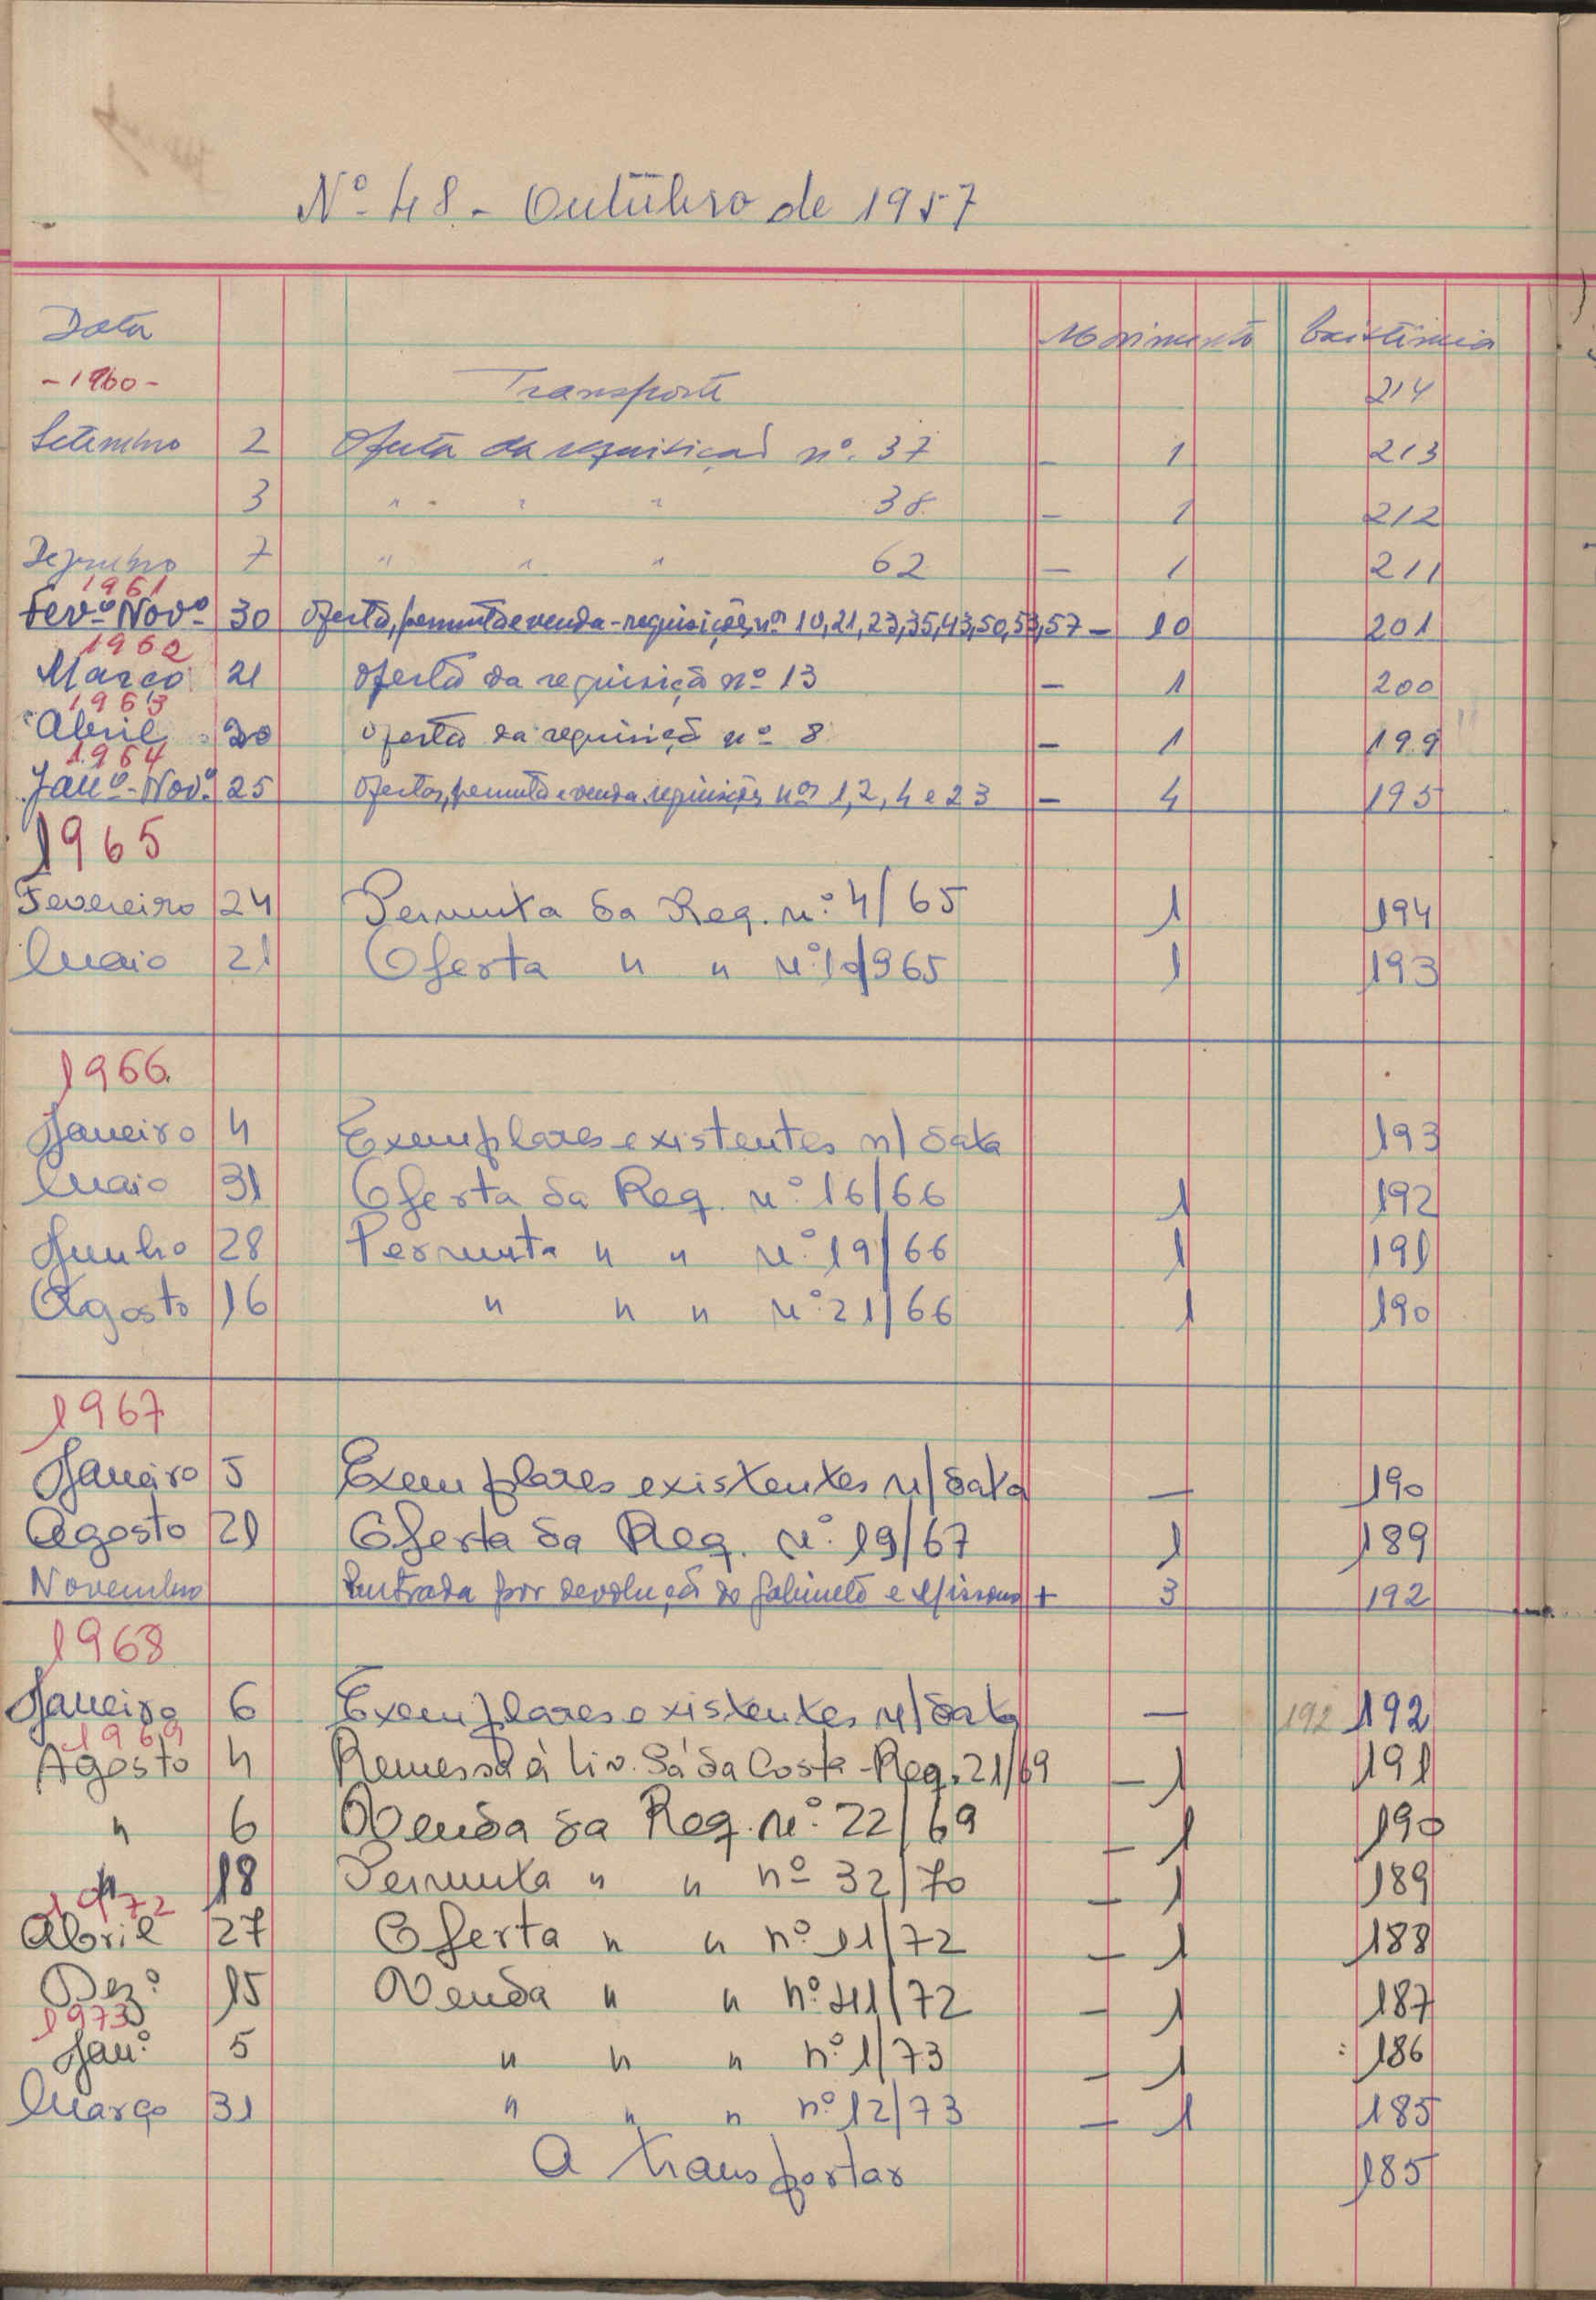 Nº 48 - Outubro de 1957
Data Movimento Existência
-1960- Transporte 214
Setembro 2 Oferta da requisição nº. 37 - 1 213
3 " " " " 38. - 1 212
Dezembro 7 " " " 62 - 1 211
1961
Fevº-Novº 30 oferta, permuta e venda - requisições, nºs 10,21,23,35,43,50,53,57 - 10 201
1962
Março 21 oferta da requisição nº 13 - 1 200
1963
Abril 20 oferta da requisição nº 8 - 1 199
1964
Janº-Novº 25 ofertas, permuta e venda requisições nºs 1,2,4 e 23 - 4 195
1965
Fevereiro 24 Permuta da Req. nº 4/65 1 194
Maio 21 Oferta " " nº 10/965 1 193
1966.
Janeiro 4 Exemplares existentes n/data 193
Maio 31 Oferta da Req. nº 16/66 1 192
Junho 28 Permuta " " nº 19/66 1 191
Agosto 16 " " " nº 21/66 1 190
1967
Janeiro 5 Exemplares existentes n/data — 190
Agosto 21 Oferta da Req. nº 19/67 1 189
Novembro Entrada por devolução do Gabinete e + 3 192
1968
Janeiro 6 Exemplares existentes n/data — 192 192
1969
Agosto 4 Remessa à Liv. Sá da Costa - Req. 21/69 - 1 191
" 6 Venda da Req. nº 22/69 - 1 190
" 18 Permuta " " nº 32/70 - 1 189
1972
Abril 27 Oferta " " nº 11/72 - 1 188
Dezº 15 Venda " " nº 41/72 - 1 187
1973
Janº 5 " " " nº 1/73 - 1 186
Março 31 " " " nº 12/73 - 1 185
A transportar 185